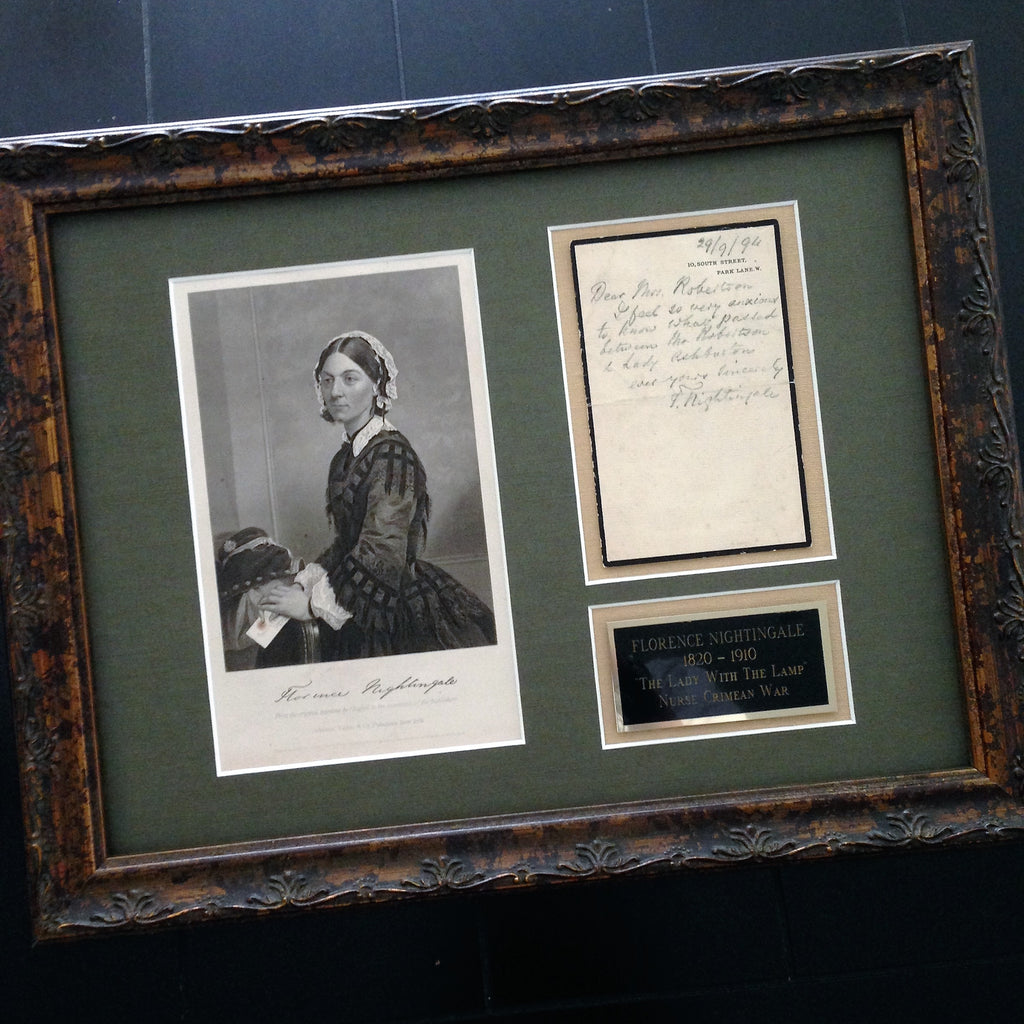 Florence Nightingale
29/9/94
10, SOUTH STREET,
PARK LANE. W.
Dear Mrs. Robertson
I feel so very anxious
to know what passed
between Mr. Robertson
& Lady Ashburton
ever yours sincerely
F. Nightingale
FLORENCE NIGHTINGALE
1820 - 1910
"THE LADY WITH THE LAMP"
NURSE CRIMEAN WAR